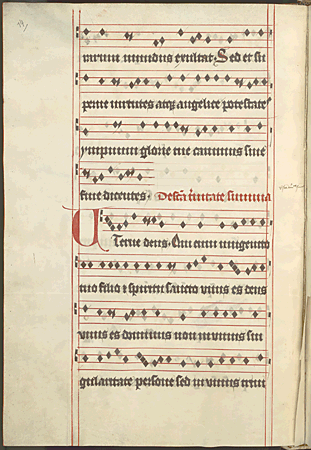 rarum mundus exultat Sed et su
perne virtutes atqꝫ angelice potestates
ymnum glorie tue canunt sine
fine dicentes. De sctā trinitate summa
Eterne deus. Qui cum unigenito
tuo filio et spiritu sancto unus es deus
unus es dominus non in unius sin
gularitate persone sed in unius trini